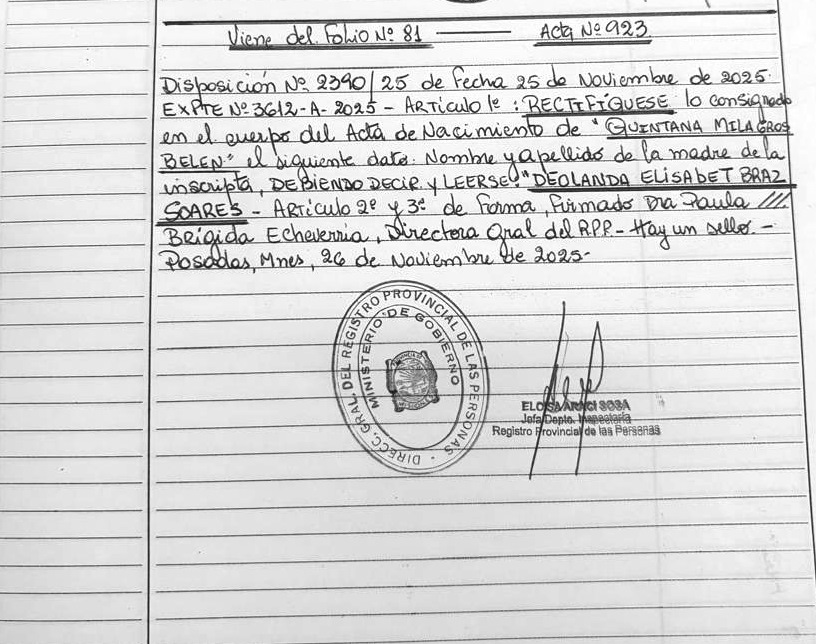 Viene del Folio Nº 81 —— Acta Nº 923
Disposición Nº 2390/25 de fecha 25 de Noviembre de 2025.
EXPTE Nº 3612-A-2025 - Artículo 1º: RECTIFÍQUESE lo consignado
en el cuerpo del Acta de Nacimiento de "QUINTANA MILAGROS
BELEN" el siguiente dato: Nombre y apellido de la madre de la
inscripta, DEBIENDO DECIR y LEERSE: "DEOLANDA ELISABET BRAZ
SOARES - Artículo 2º y 3º de Forma, firmado Dra Paula ///
Brígida Echeverria, Directora Gral del R.P.P. - Hay un sello. -
Posadas, Mnes, 26 de Noviembre de 2025-
DIRECC. GRAL. DEL REGISTRO PROVINCIAL DE LAS PERSONAS
MINISTERIO DE GOBIERNO
SOSA
Jefa Depto.
Registro Provincial de las Personas